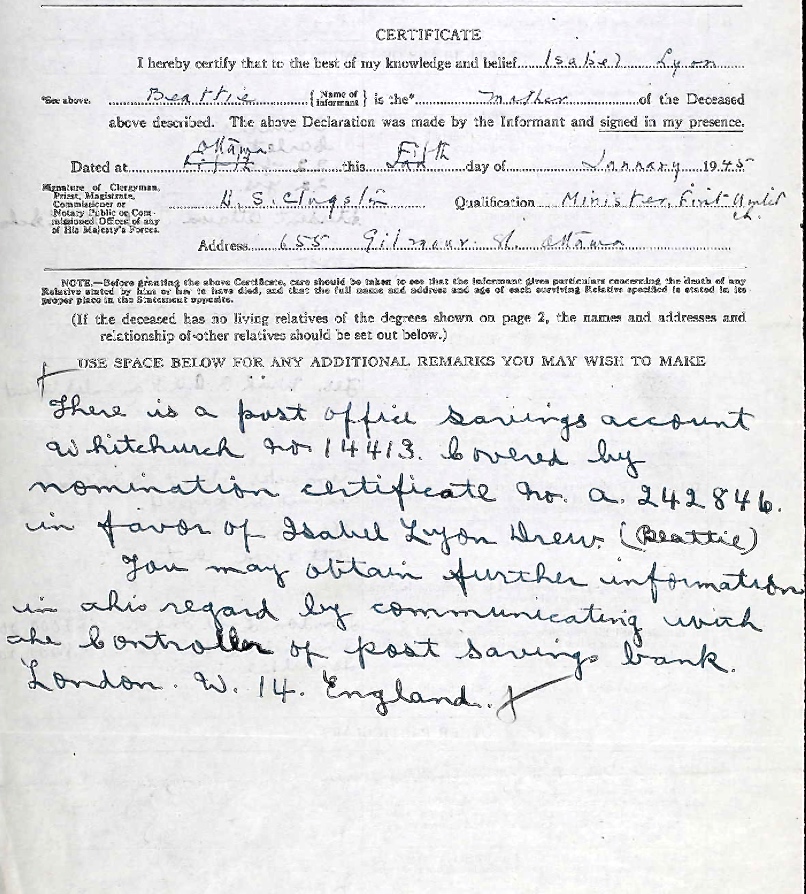 CERTIFICATE
I hereby certify that to the best of my knowledge and belief Isabel Lyon
*See above. Beattie {Name of Informant} is the* Mother of the Deceased
above described. The above Declaration was made by the Informant and signed in my presence.
Dated at Ottawa this Fifth day of January 1945
Signature of Clergyman, Priest, Magistrate, Commissioner or Notary Public or Commissioned Officer of any of His Majesty's Forces.
H. S. Qualification Minister, First Ch.
Address 655 Gilmour St. Ottawa
NOTE.—Before granting the above Certificate, care should be taken to see that the informant gives particulars concerning the death of any
Relative stated by him or her to have died, and that the full name and address and age of each surviving Relative specified is stated in its
proper place in the Statement opposite.
(If the deceased has no living relatives of the degrees shown on page 2, the names and addresses and
relationship of other relatives should be set out below.)
USE SPACE BELOW FOR ANY ADDITIONAL REMARKS YOU MAY WISH TO MAKE
There is a post office savings account
Whitchurch no. 14413. Covered by
nomination certificate no. a. 242846.
in favor of Isabel Lyon Drew. (Beattie)
You may obtain further information
in this regard by communicating with
the Controller of post savings bank.
London. W. 14. England.